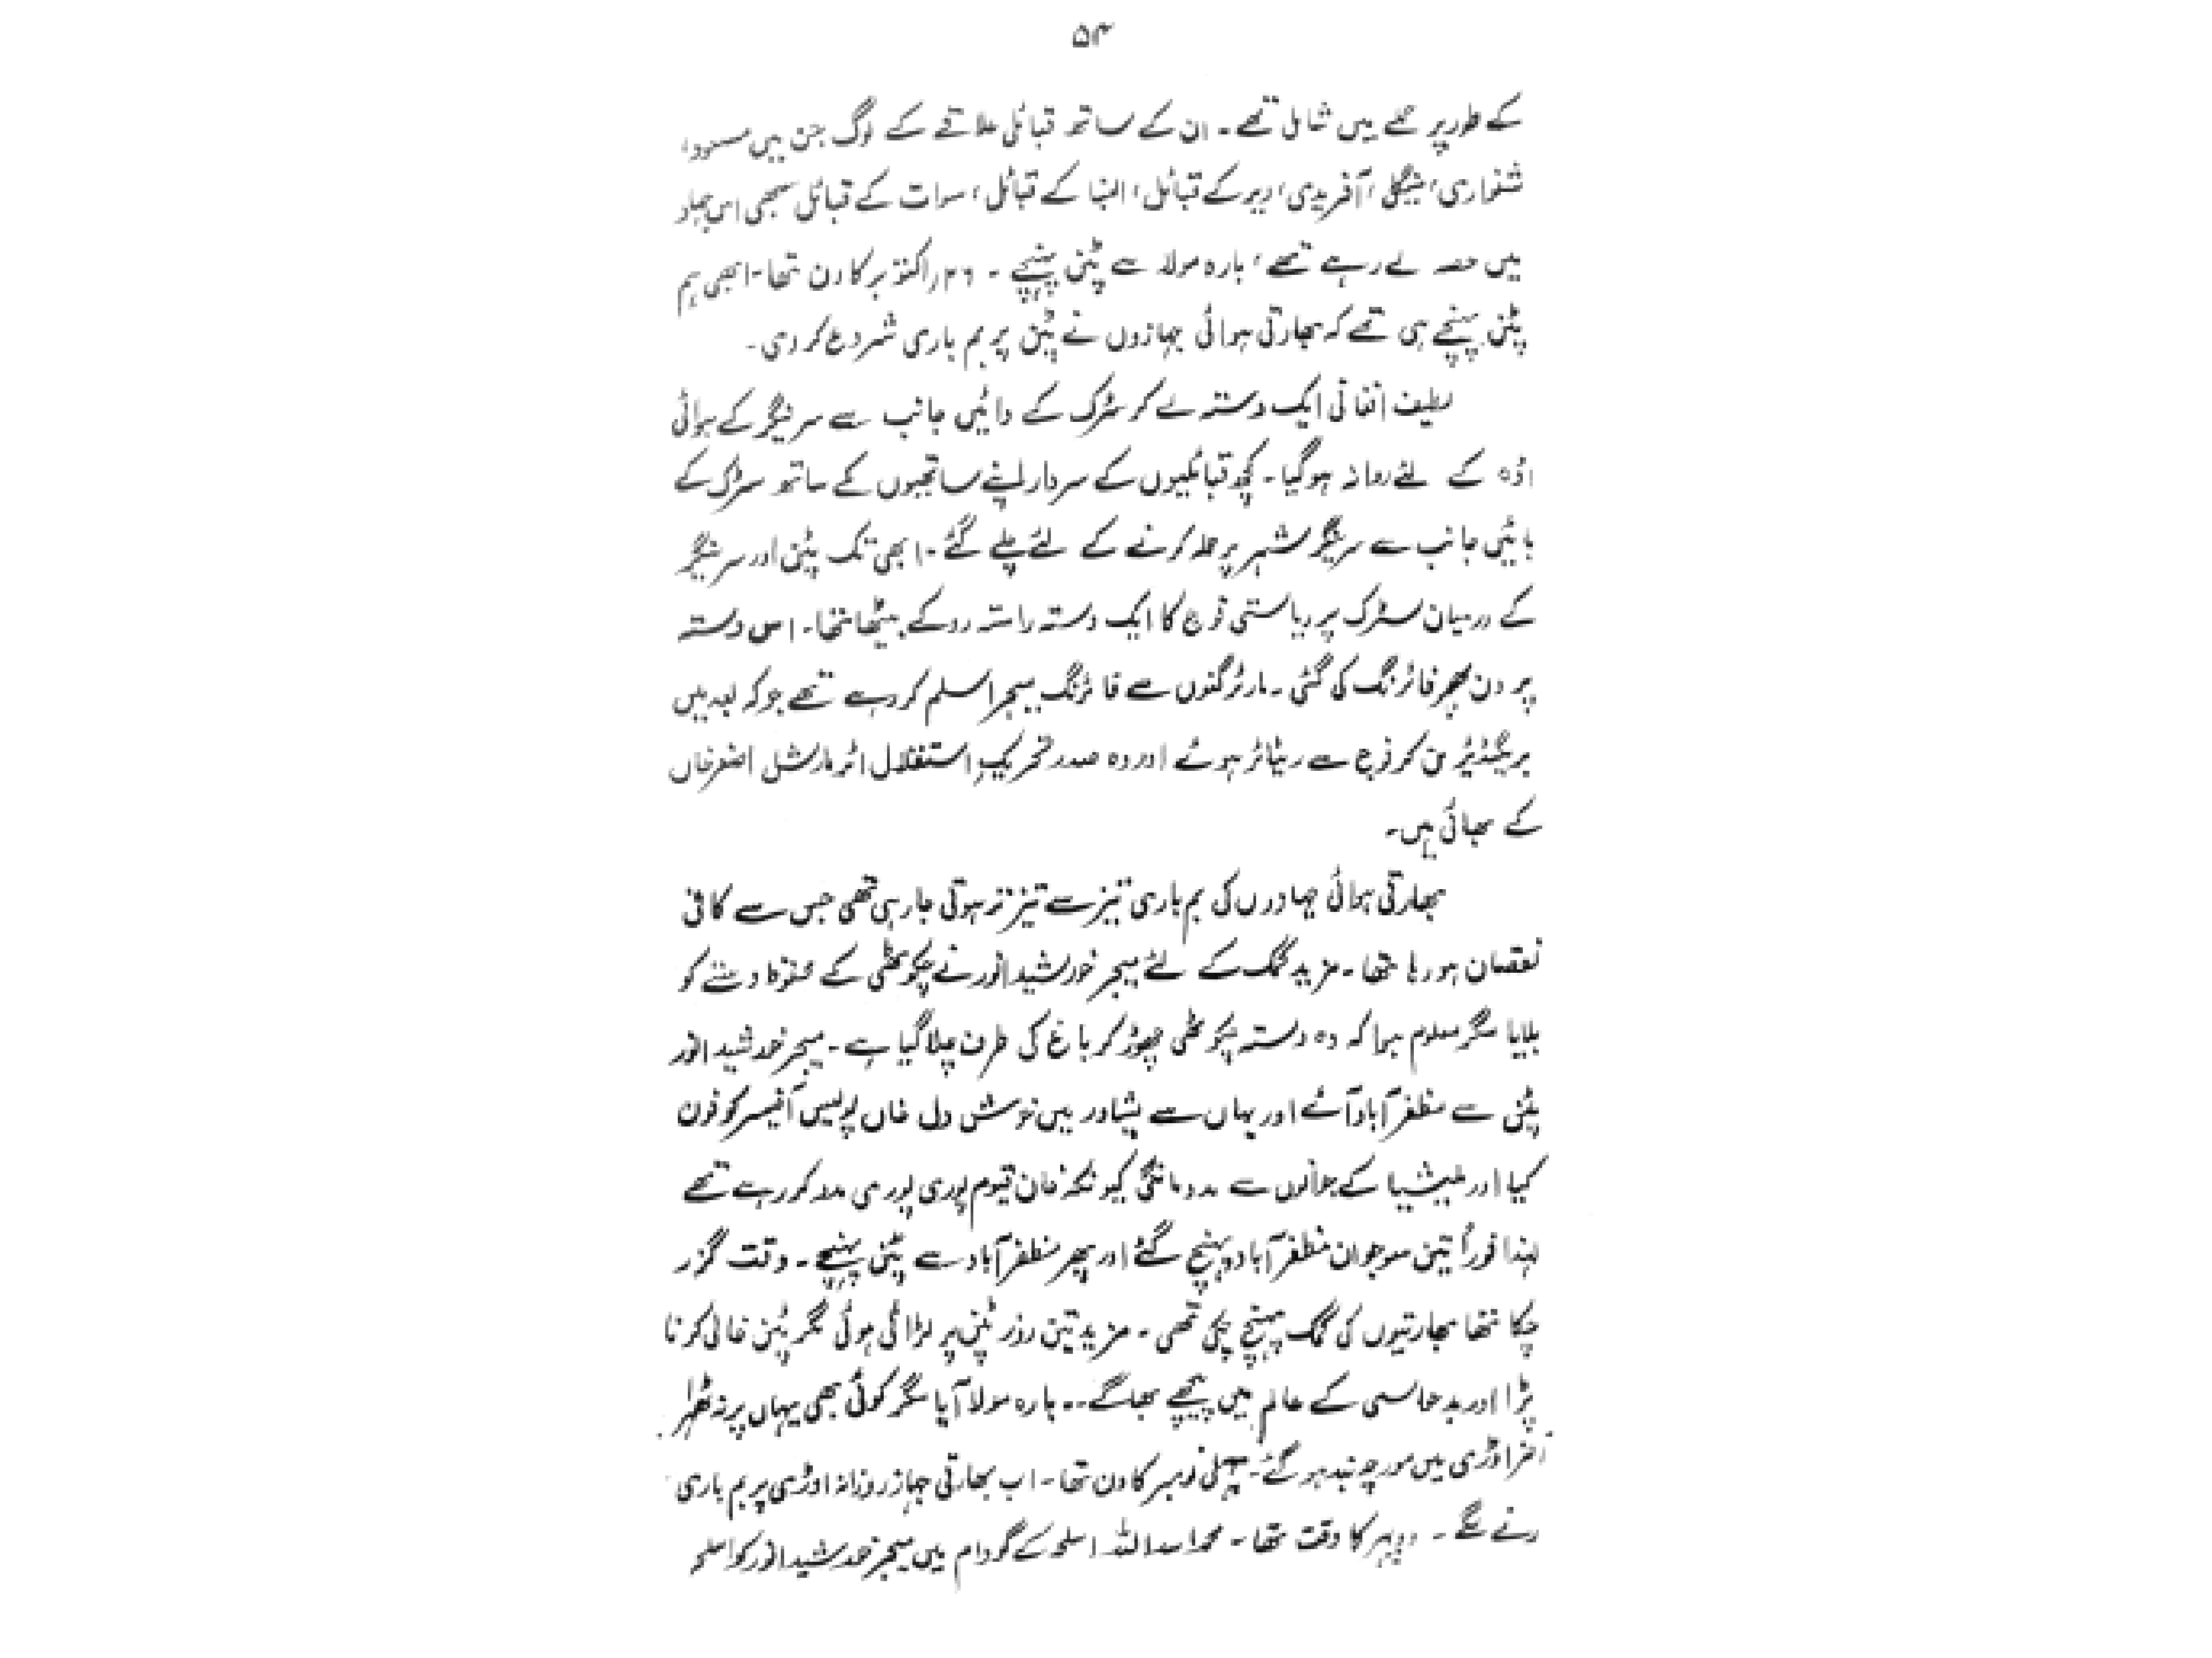 ۵۴
کے طور پر حملے میں شامل تھے۔ ان کے ساتھ قبائلی علاقے کے لوگ جن میں مسعود،
شنواری، مینگلی، آفریدی، دیر کے قبائل، الپا کے قبائل، سوات کے قبائل سبھی اس جہاد
میں حصہ لے رہے تھے، بارہ مولا سے پٹن پہنچے۔ ۲۶ر اکتوبر کا دن تھا۔ ابھی ہم
پٹن پہنچے ہی تھے کہ بھارتی ہوائی جہازوں نے پٹن پر بم باری شروع کر دی۔
لطیف افغانی ایک دستہ لے کر سڑک کے دائیں جانب سے سرینگر کے ہوائی
اڈہ کے لئے روانہ ہو گیا۔ کچھ قبائلیوں کے سردار اپنے ساتھیوں کے ساتھ سڑک کے
بائیں جانب سے سرینگر شہر پر حملہ کرنے کے لئے چلے گئے۔ ابھی تک پٹن اور سرینگر
کے درمیان سڑک پر ریاستی فوج کا ایک دستہ راستہ روکے بیٹھا تھا۔ اس دستہ
پر دن بھر فائرنگ کی گئی۔ مارٹر گنوں سے فائرنگ میجر اسلم کر رہے تھے جو کہ بعد میں
بریگیڈیئر بن کر فوج سے ریٹائر ہوئے اور وہ صدر تحریکِ استقلال ائر مارشل اصغر خاں
کے بھائی ہیں۔
بھارتی ہوائی جہازوں کی بم باری تیز سے تیز تر ہوتی جا رہی تھی جس سے کافی
نقصان ہو رہا تھا۔ مزید کمک کے لئے میجر خورشید انور نے چکوٹھی کے محفوظ دستے کو
بلایا مگر معلوم ہوا کہ وہ دستہ چکوٹھی چھوڑ کر باغ کی طرف چلا گیا ہے۔ میجر خورشید انور
پٹن سے مظفر آباد آئے اور یہاں سے پشاور میں خوش دل خاں پولیس آفیسر کو فون
کیا اور ملیشیا کے جوانوں سے مدد مانگی کیونکہ خان قیوم پوری پوری مدد کر رہے تھے
لہٰذا فوراً تین سو جوان مظفر آباد پہنچ گئے اور پھر مظفر آباد سے پٹن پہنچے۔ وقت گزر
چکا تھا بھارتیوں کی کمک پہنچ چکی تھی۔ مزید تین روز پٹن پر لڑائی ہوئی مگر پٹن خالی کرنا
پڑا اور بدحواسی کے عالم میں پیچھے بھاگے۔۔ بارہ مولا آیا مگر کوئی بھی یہاں پر نہ ٹھہرا
آخر اوڑی میں مورچہ بند ہو گئے۔ پہلی نومبر کا دن تھا۔ اب بھارتی جہاز روزانہ اوڑی پر بم باری
رنے لگے۔ دوپہر کا وقت تھا۔ محمد اسد اللہ اسلحہ کے گودام میں میجر خورشید انور کو اسلحہ